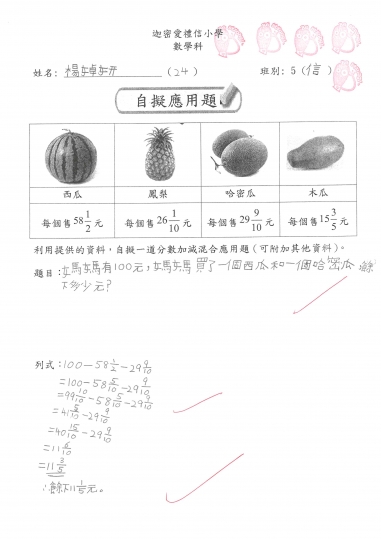 迦密愛禮信小學
數學科
姓名：楊婥妍（24） 班別：5（信）
自擬應用題
西瓜 鳳梨 哈密瓜 木瓜
每個售58 1/2元 每個售26 1/10元 每個售29 9/10元 每個售15 3/5元
利用提供的資料，自擬一道分數加減混合應用題（可附加其他資料）。
題目：媽媽有100元，媽媽買了一個西瓜和一個哈密瓜，餘
下多少元？
列式：100－58 1/2－29 9/10
=100－58 5/10－29 9/10
=99 10/10－58 5/10－29 9/10
=41 5/10－29 9/10
=40 15/10－29 9/10
=11 6/10
=11 3/5
∴餘下11 1/5元。